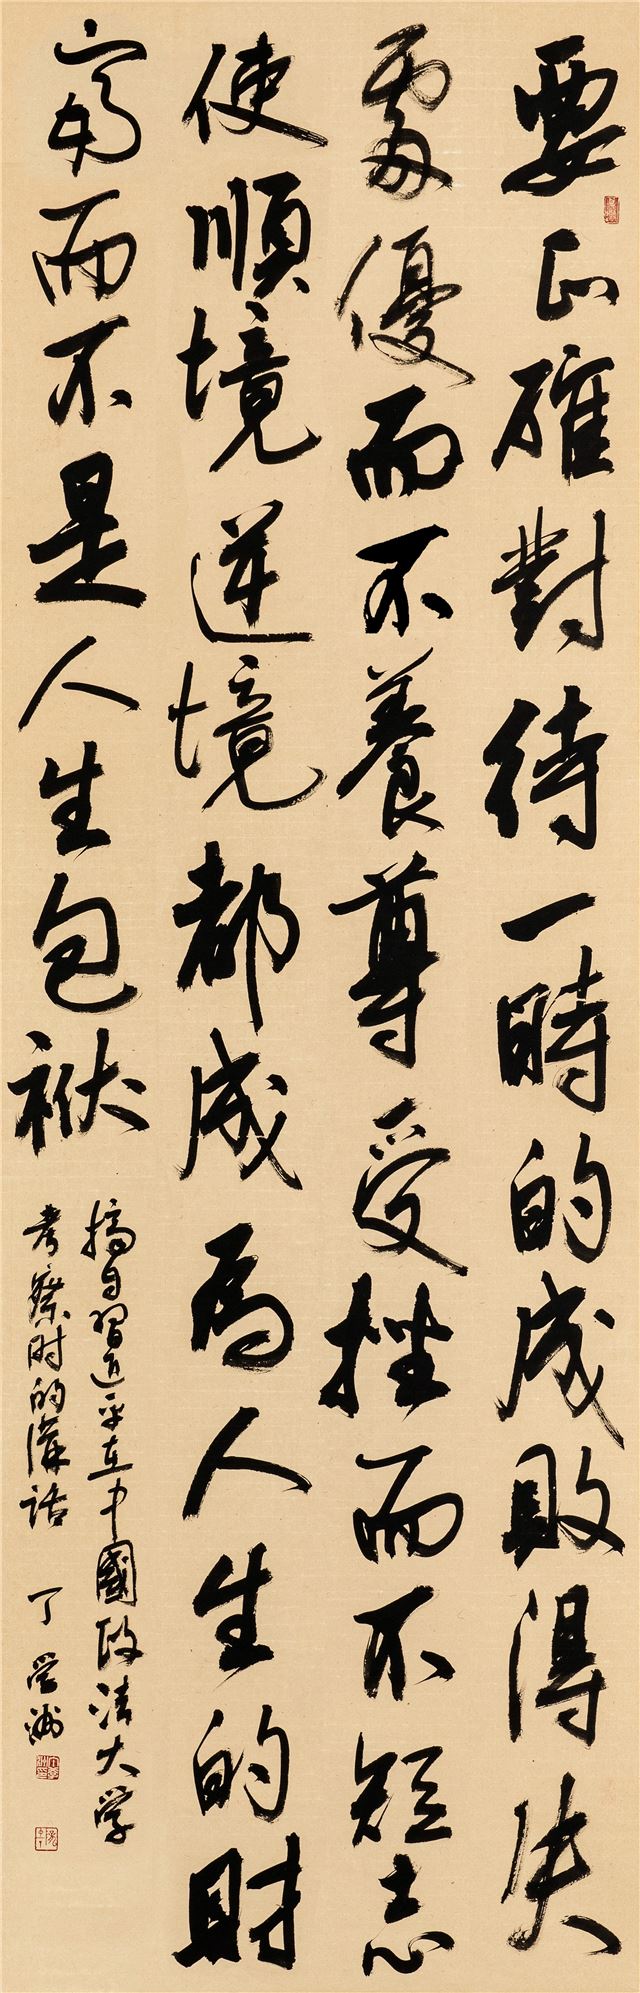 要正確對待一時的成敗得失
處優而不養尊受挫而不短志
使順境逆境都成爲人生的財
富而不是人生包袱
摘自習近平在中國政法大学
考察时的講話 丁